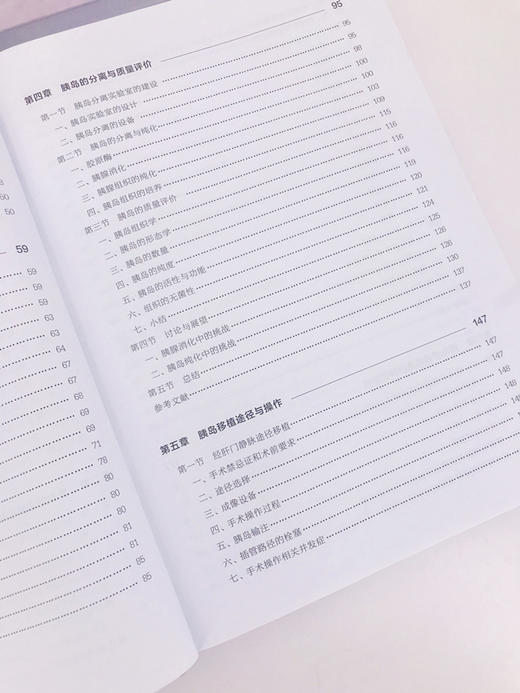 50
50
59
59
59
63
63
64
66
67
68
69
69
71
78
80
80
80
81
81
85
85
第四章 胰岛的分离与质量评价 95
第一节 胰岛分离实验室的建设 95
一、胰岛实验室的设计 95
二、胰岛分离的设备 98
第二节 胰岛的分离与纯化 100
一、胶原酶 100
二、胰腺消化 102
三、胰腺组织的纯化 103
四、胰岛组织的培养 115
第三节 胰岛的质量评价 116
一、胰岛组织学 116
二、胰岛的形态学 116
三、胰岛的数量 119
四、胰岛的纯度 121
五、胰岛的活性与功能 124
六、组织的无菌性 125
七、小结 126
第四节 讨论与展望 126
一、胰腺消化中的挑战 126
二、胰岛纯化中的挑战 130
第五节 总结 137
参考文献 137
第五章 胰岛移植途径与操作 147
第一节 经肝门静脉途径移植 147
一、手术禁忌证和术前要求 147
二、途径选择 148
三、成像设备 148
四、手术操作过程 148
五、胰岛输注
六、插管路径的栓塞
七、手术操作相关并发症